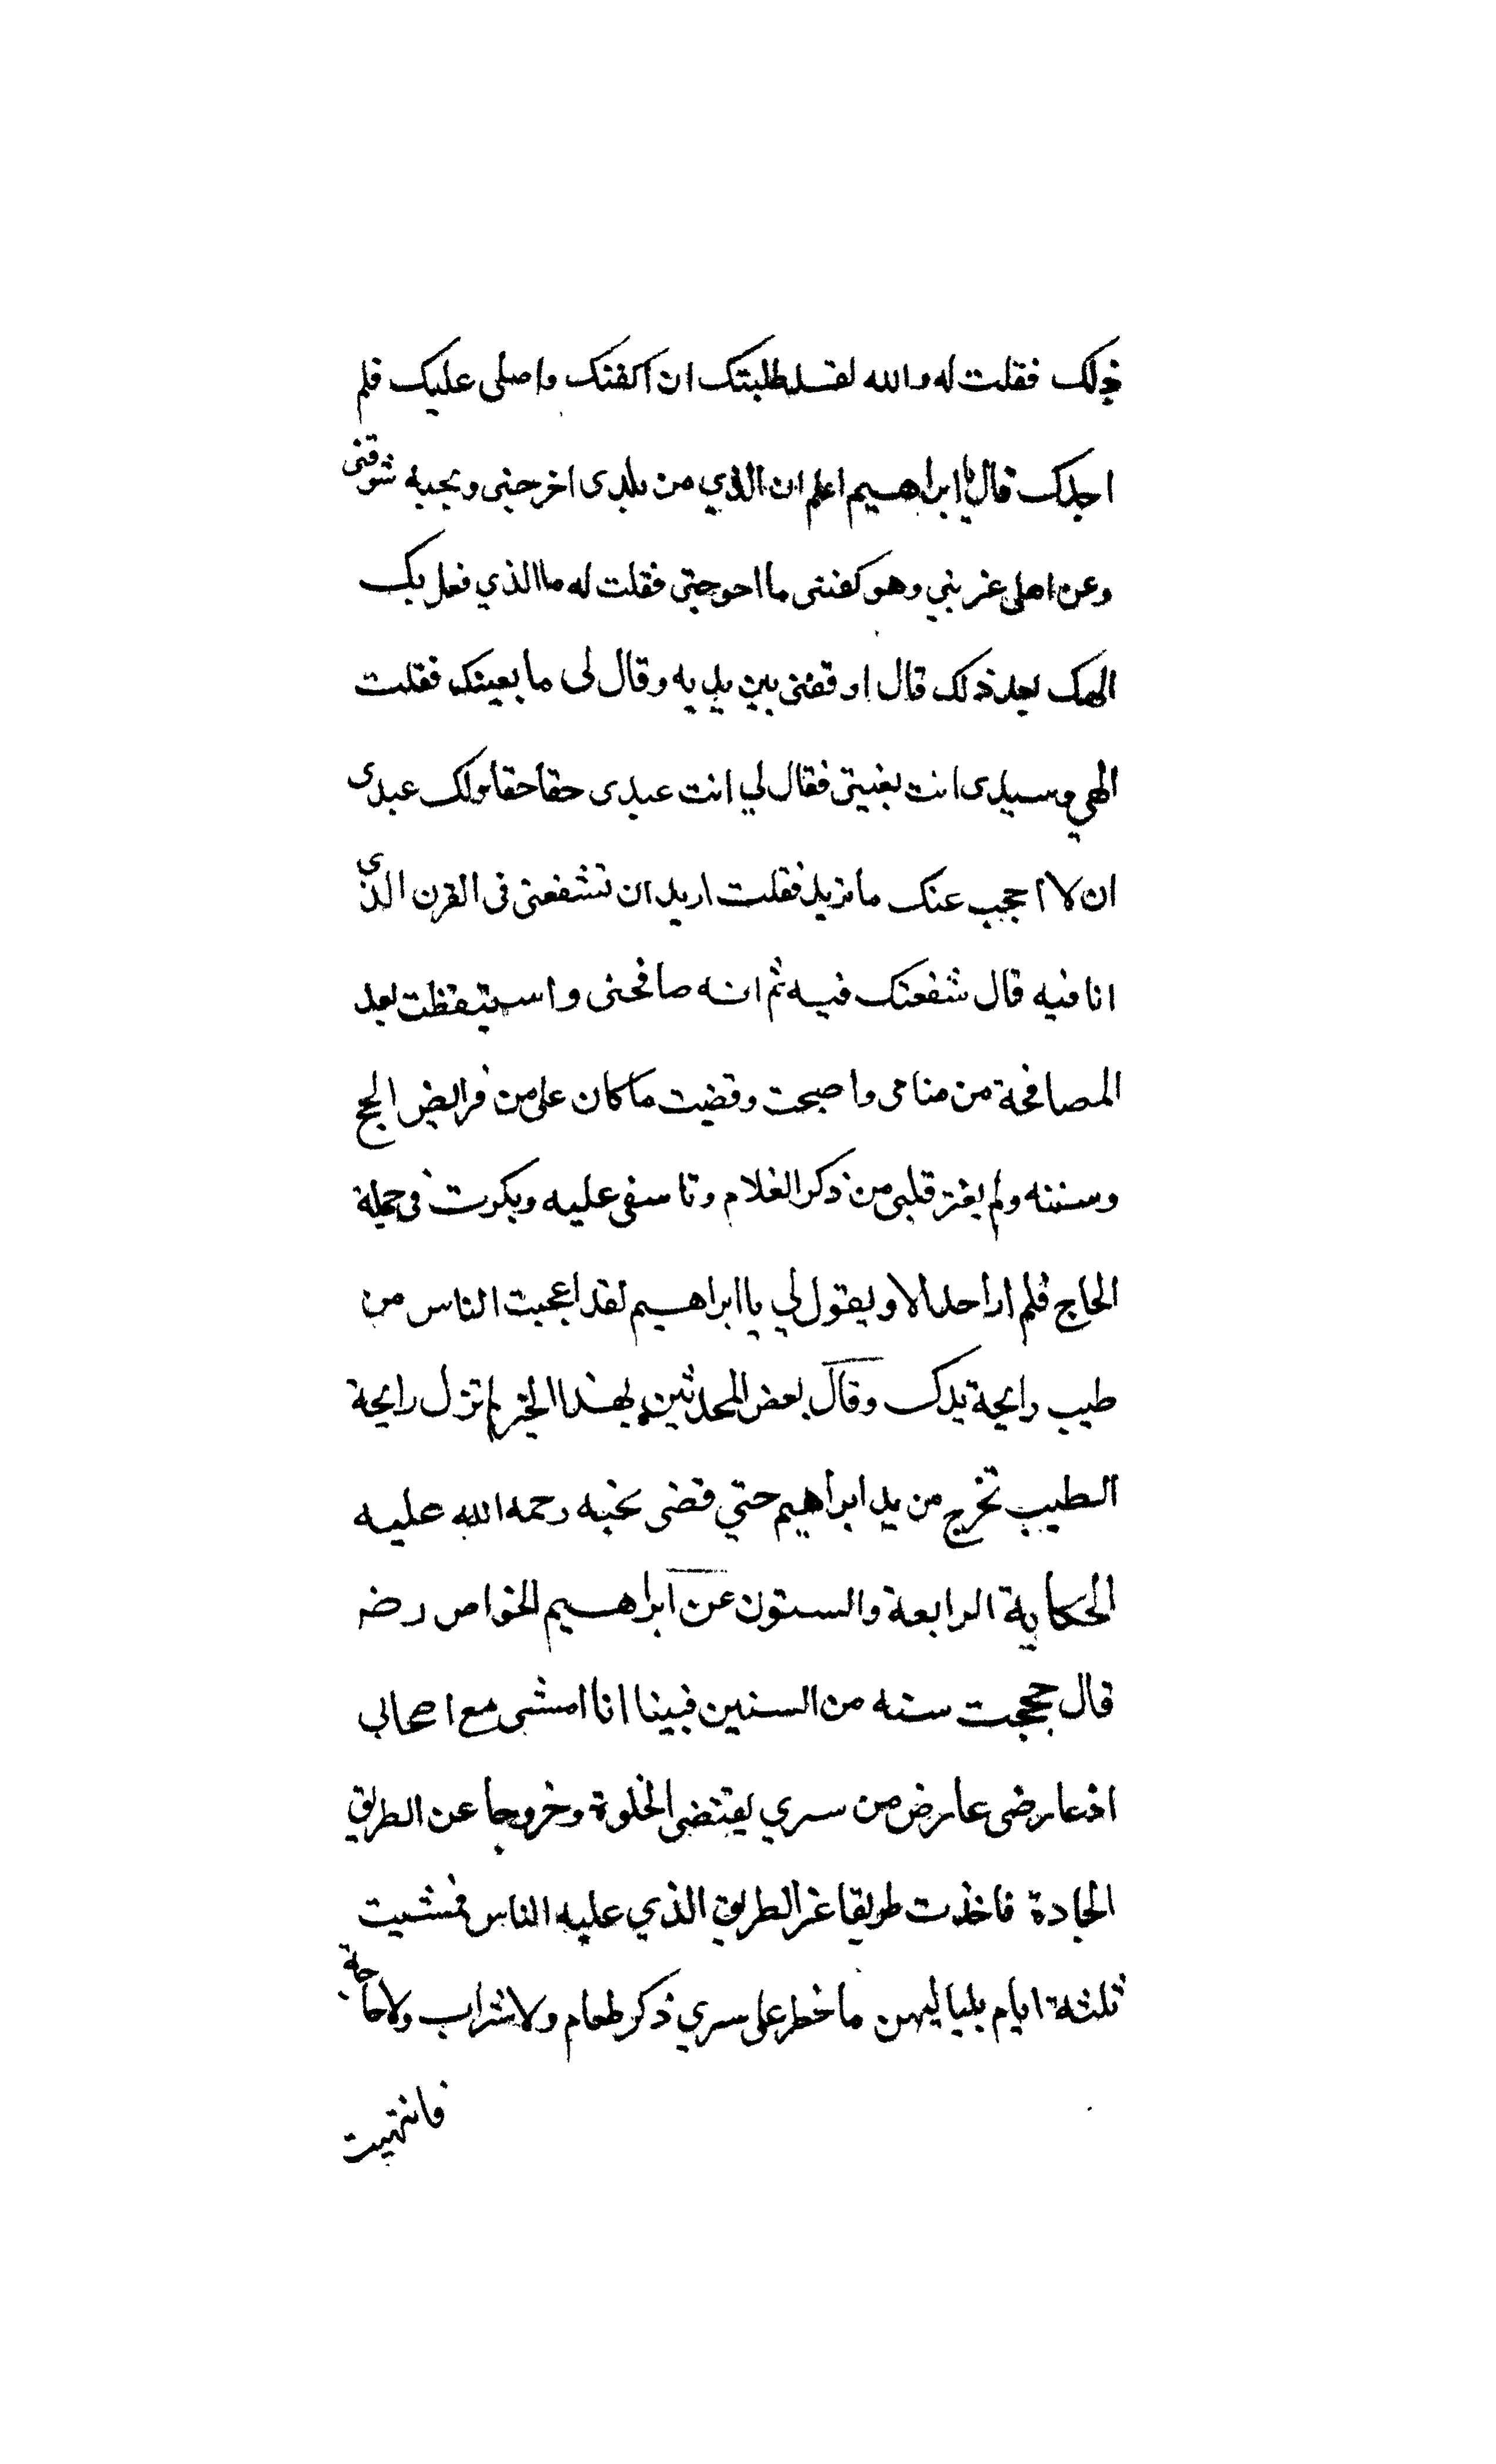 ذلك فقلت له والله لقد طلبتك ان اكفنك واصلى عليك فلم
اجدك قال يا ابراهيم اعلم ان الذي من بلدى اخرجنى وبحبه شوقنى
وعن اهلى غربني وهو كفننى ما احوجنى فقلت له ما الذي فعل بك
الهك بعد ذلك قال اوقفنى بين يديه وقال لى ما بغيتك فقلت
الهي وسيدى انت بغيتى فقال لي انت عبدى حقا حقا ولك عبدى
ان لا احجب عنك ما تريد فقلت اريد ان تشفعنى فى القرن الذى
انا فيه قال شفعتك فيه ثم انه صافحنى واستيقظت بعد
المصافحة من منامى واصبحت وقضيت ما كان على من فرايض الحج
وسننه ولم يفتر قلبى من ذكر الغلام وتاسفى عليه وبكرت فى جملة
الحاج فلم ار احدا الا ويقول لي يا ابراهيم لقد اعجبت الناس من
طيب رايحة يدك وقال بعض المحدثين بهذا الخبر لم تزل رايحة
الطيب تخرج من يد ابراهيم حتي قضى نحبه رحمه الله عليه
الحكاية الرابعة والستون عن ابراهيم الخواص رضه
قال حججت سنه من السنين فبينا انا امشى مع اصحابى
اذ عارضى عارض من سري يقتضى الخلوة وخروجا عن الطريق
الجادة فاخذت طريقا غير الطريق الذي عليه الناس فمشيت
ثلثة ايام بلياليهن ما خطر على سري ذكر طعام ولا شراب ولا حاجة
فانتهيت